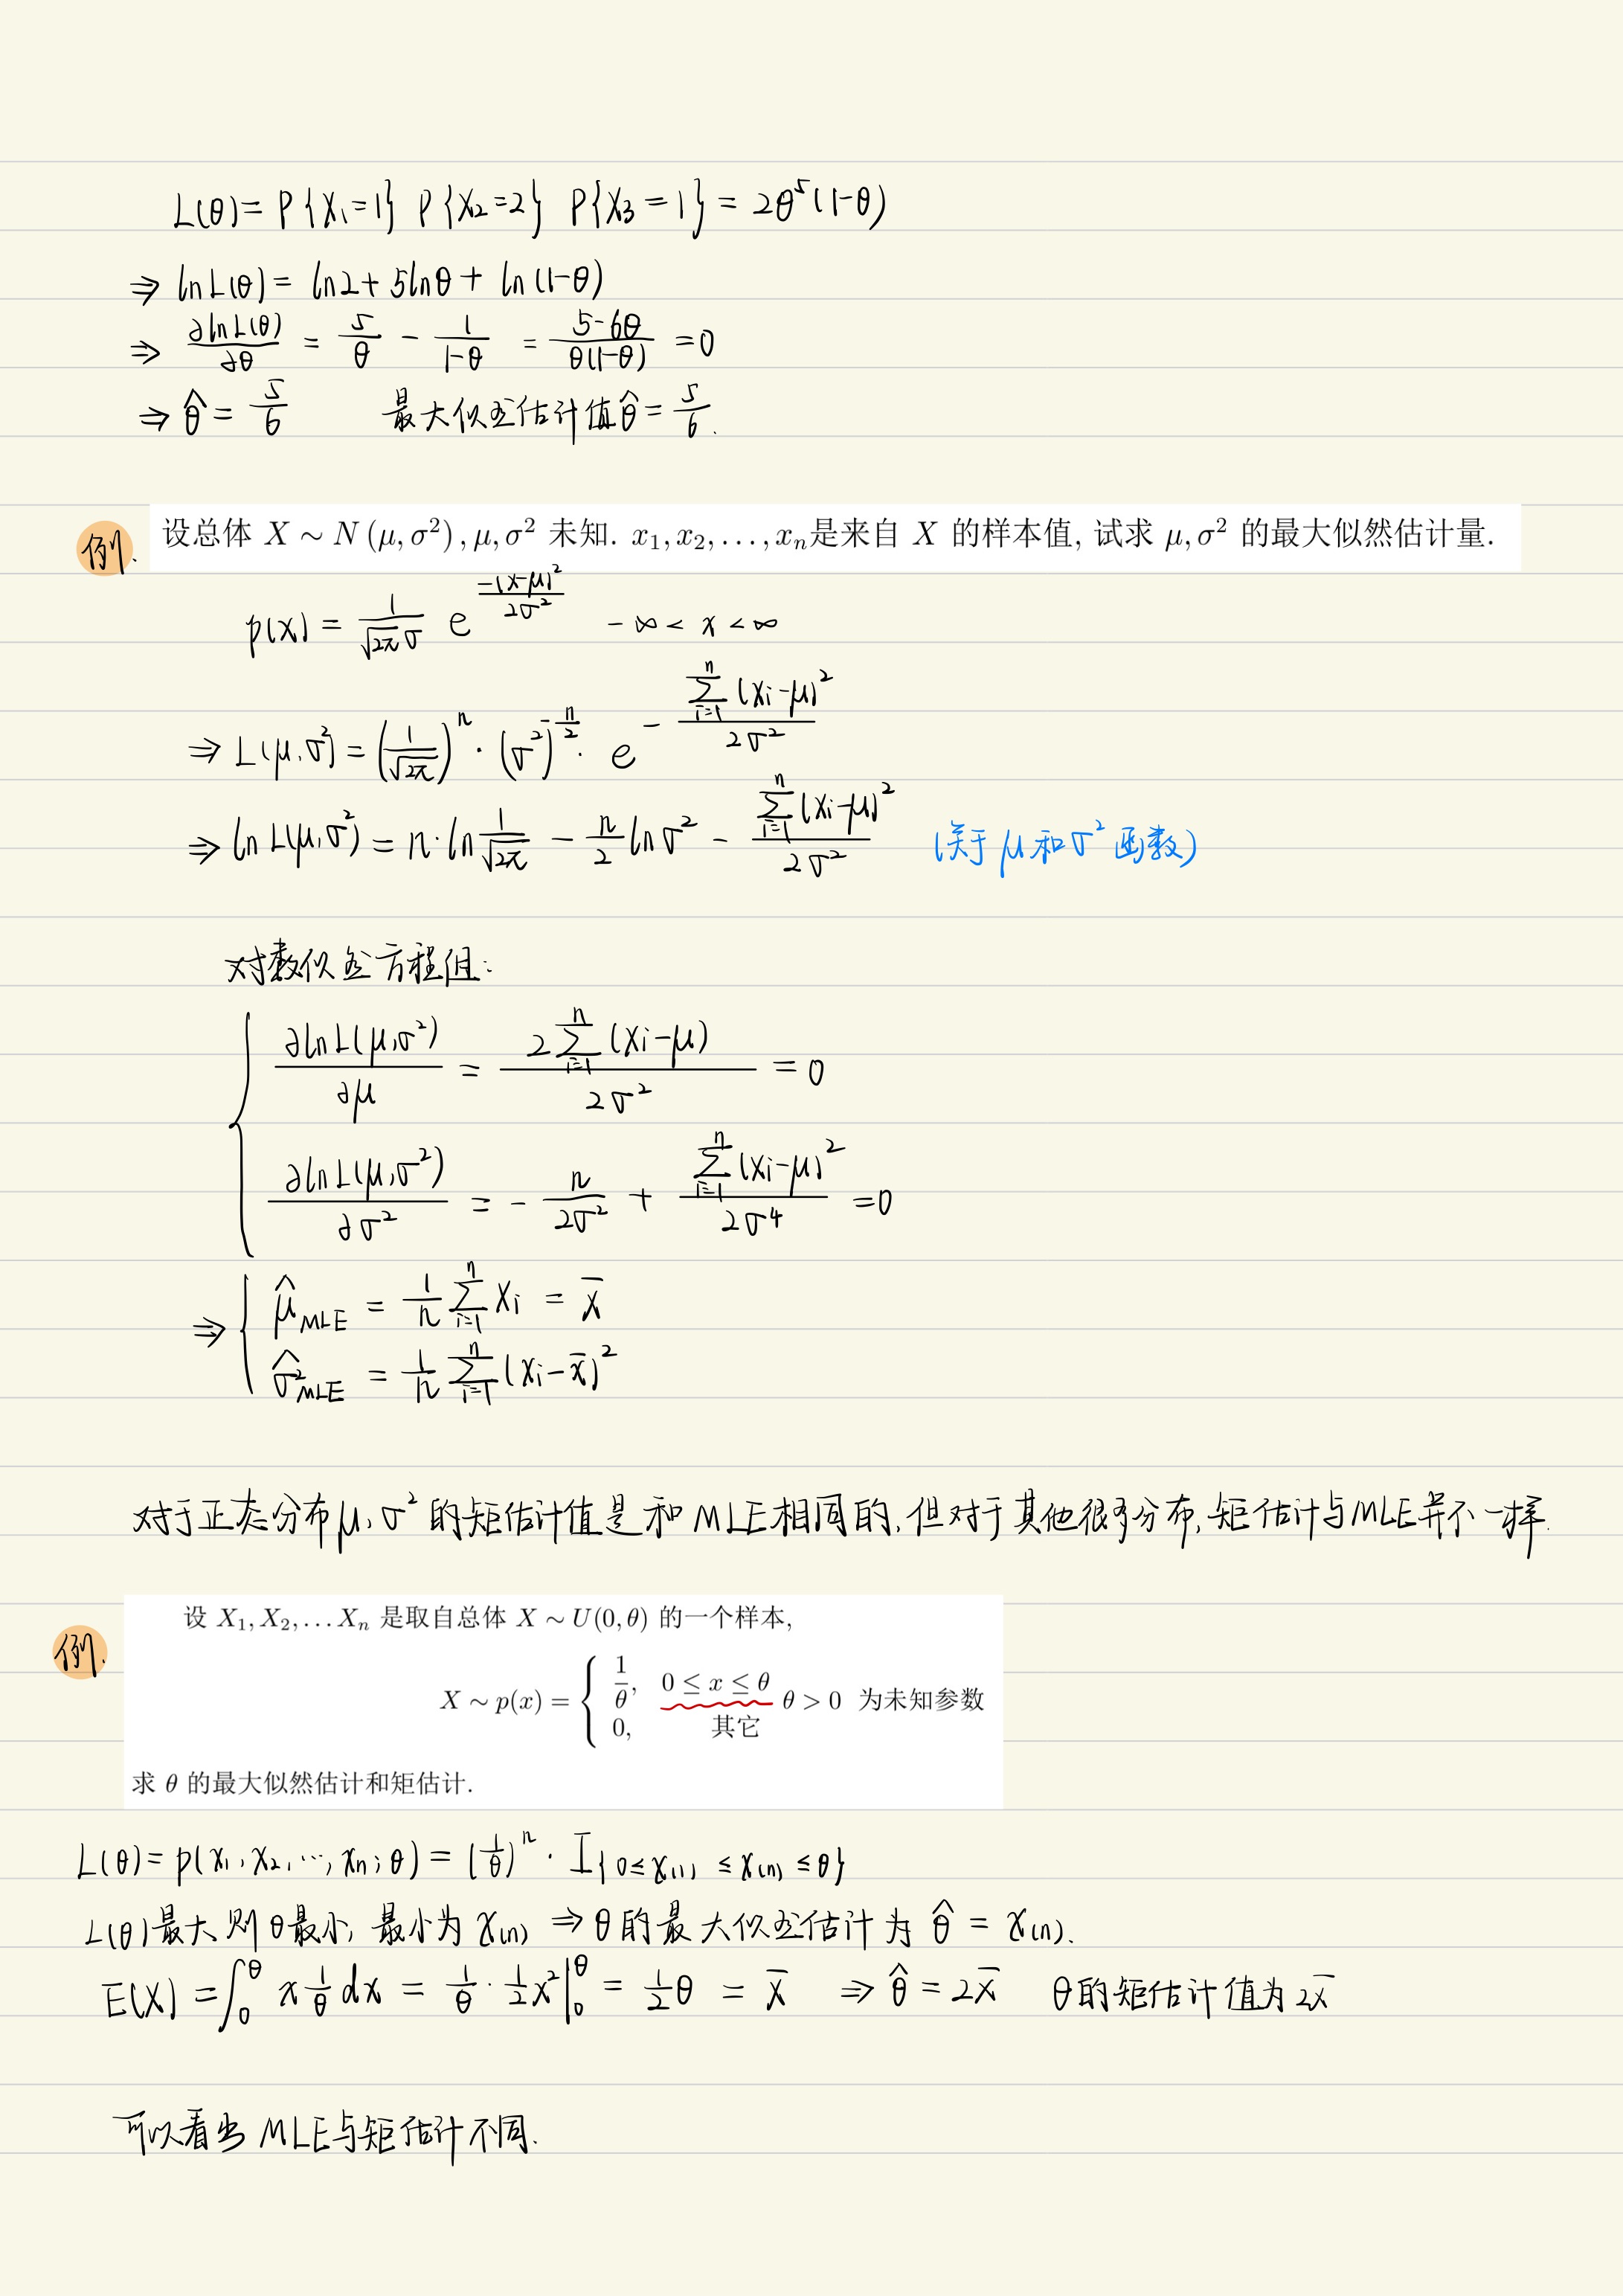 L(θ)= P{X₁=1} P{X₂=2} P{X₃=1} = 2θ⁵(1-θ)
⇒ lnL(θ)= ln2+5lnθ+ ln(1-θ)
⇒ ∂lnL(θ)/∂θ = 5/θ - 1/(1-θ) = (5-6θ)/(θ(1-θ)) =0
⇒ θ̂ = 5/6 最大似然估计值θ̂ = 5/6.
例. 设总体 X ∼ N (μ, σ²), μ, σ² 未知. x₁, x₂, ..., xₙ是来自 X 的样本值, 试求 μ, σ² 的最大似然估计量.
p(x) = 1/(√2π σ) e^(-(x-μ)²/2σ²) -∞ < x < ∞
⇒ L(μ,σ²) = (1/√2π)ⁿ · (σ²)^(-n/2) · e^(-∑ᵢ₌₁ⁿ(xᵢ-μ)²/2σ²)
⇒ ln L(μ,σ²) = n·ln 1/√2π - n/2 lnσ² - ∑ᵢ₌₁ⁿ(xᵢ-μ)²/2σ² (关于μ和σ²函数)
对数似然方程组:
∂lnL(μ,σ²)/∂μ = 2∑ᵢ₌₁ⁿ(xᵢ-μ)/2σ² = 0
∂lnL(μ,σ²)/∂σ² = - n/2σ² + ∑ᵢ₌₁ⁿ(xᵢ-μ)²/2σ⁴ =0
⇒ { μ̂_MLE = 1/n ∑ᵢ₌₁ⁿ xᵢ = x̄
σ̂²_MLE = 1/n ∑ᵢ₌₁ⁿ (xᵢ-x̄)²
对于正态分布μ,σ²的矩估计值是和MLE相同的,但对于其他很多分布,矩估计与MLE并不一样.
例. 设 X₁, X₂, ... Xₙ 是取自总体 X ∼ U(0, θ) 的一个样本,
X ∼ p(x) = { 1/θ, 0 ≤ x ≤ θ
0, 其它 θ > 0 为未知参数
求 θ 的最大似然估计和矩估计.
L(θ)= p(x₁,x₂,…,xₙ;θ) = (1/θ)ⁿ · I{0≤x₍₁₎ ≤x₍ₙ₎ ≤θ}
L(θ)最大,则θ最小,最小为x₍ₙ₎ ⇒ θ的最大似然估计为 θ̂ = x₍ₙ₎.
E(X) = ∫₀^θ x 1/θ dx = 1/θ · 1/2 x²|₀^θ = 1/2 θ = x̄ ⇒ θ̂ = 2x̄ θ的矩估计值为 2x̄
可以看出 MLE与矩估计不同.